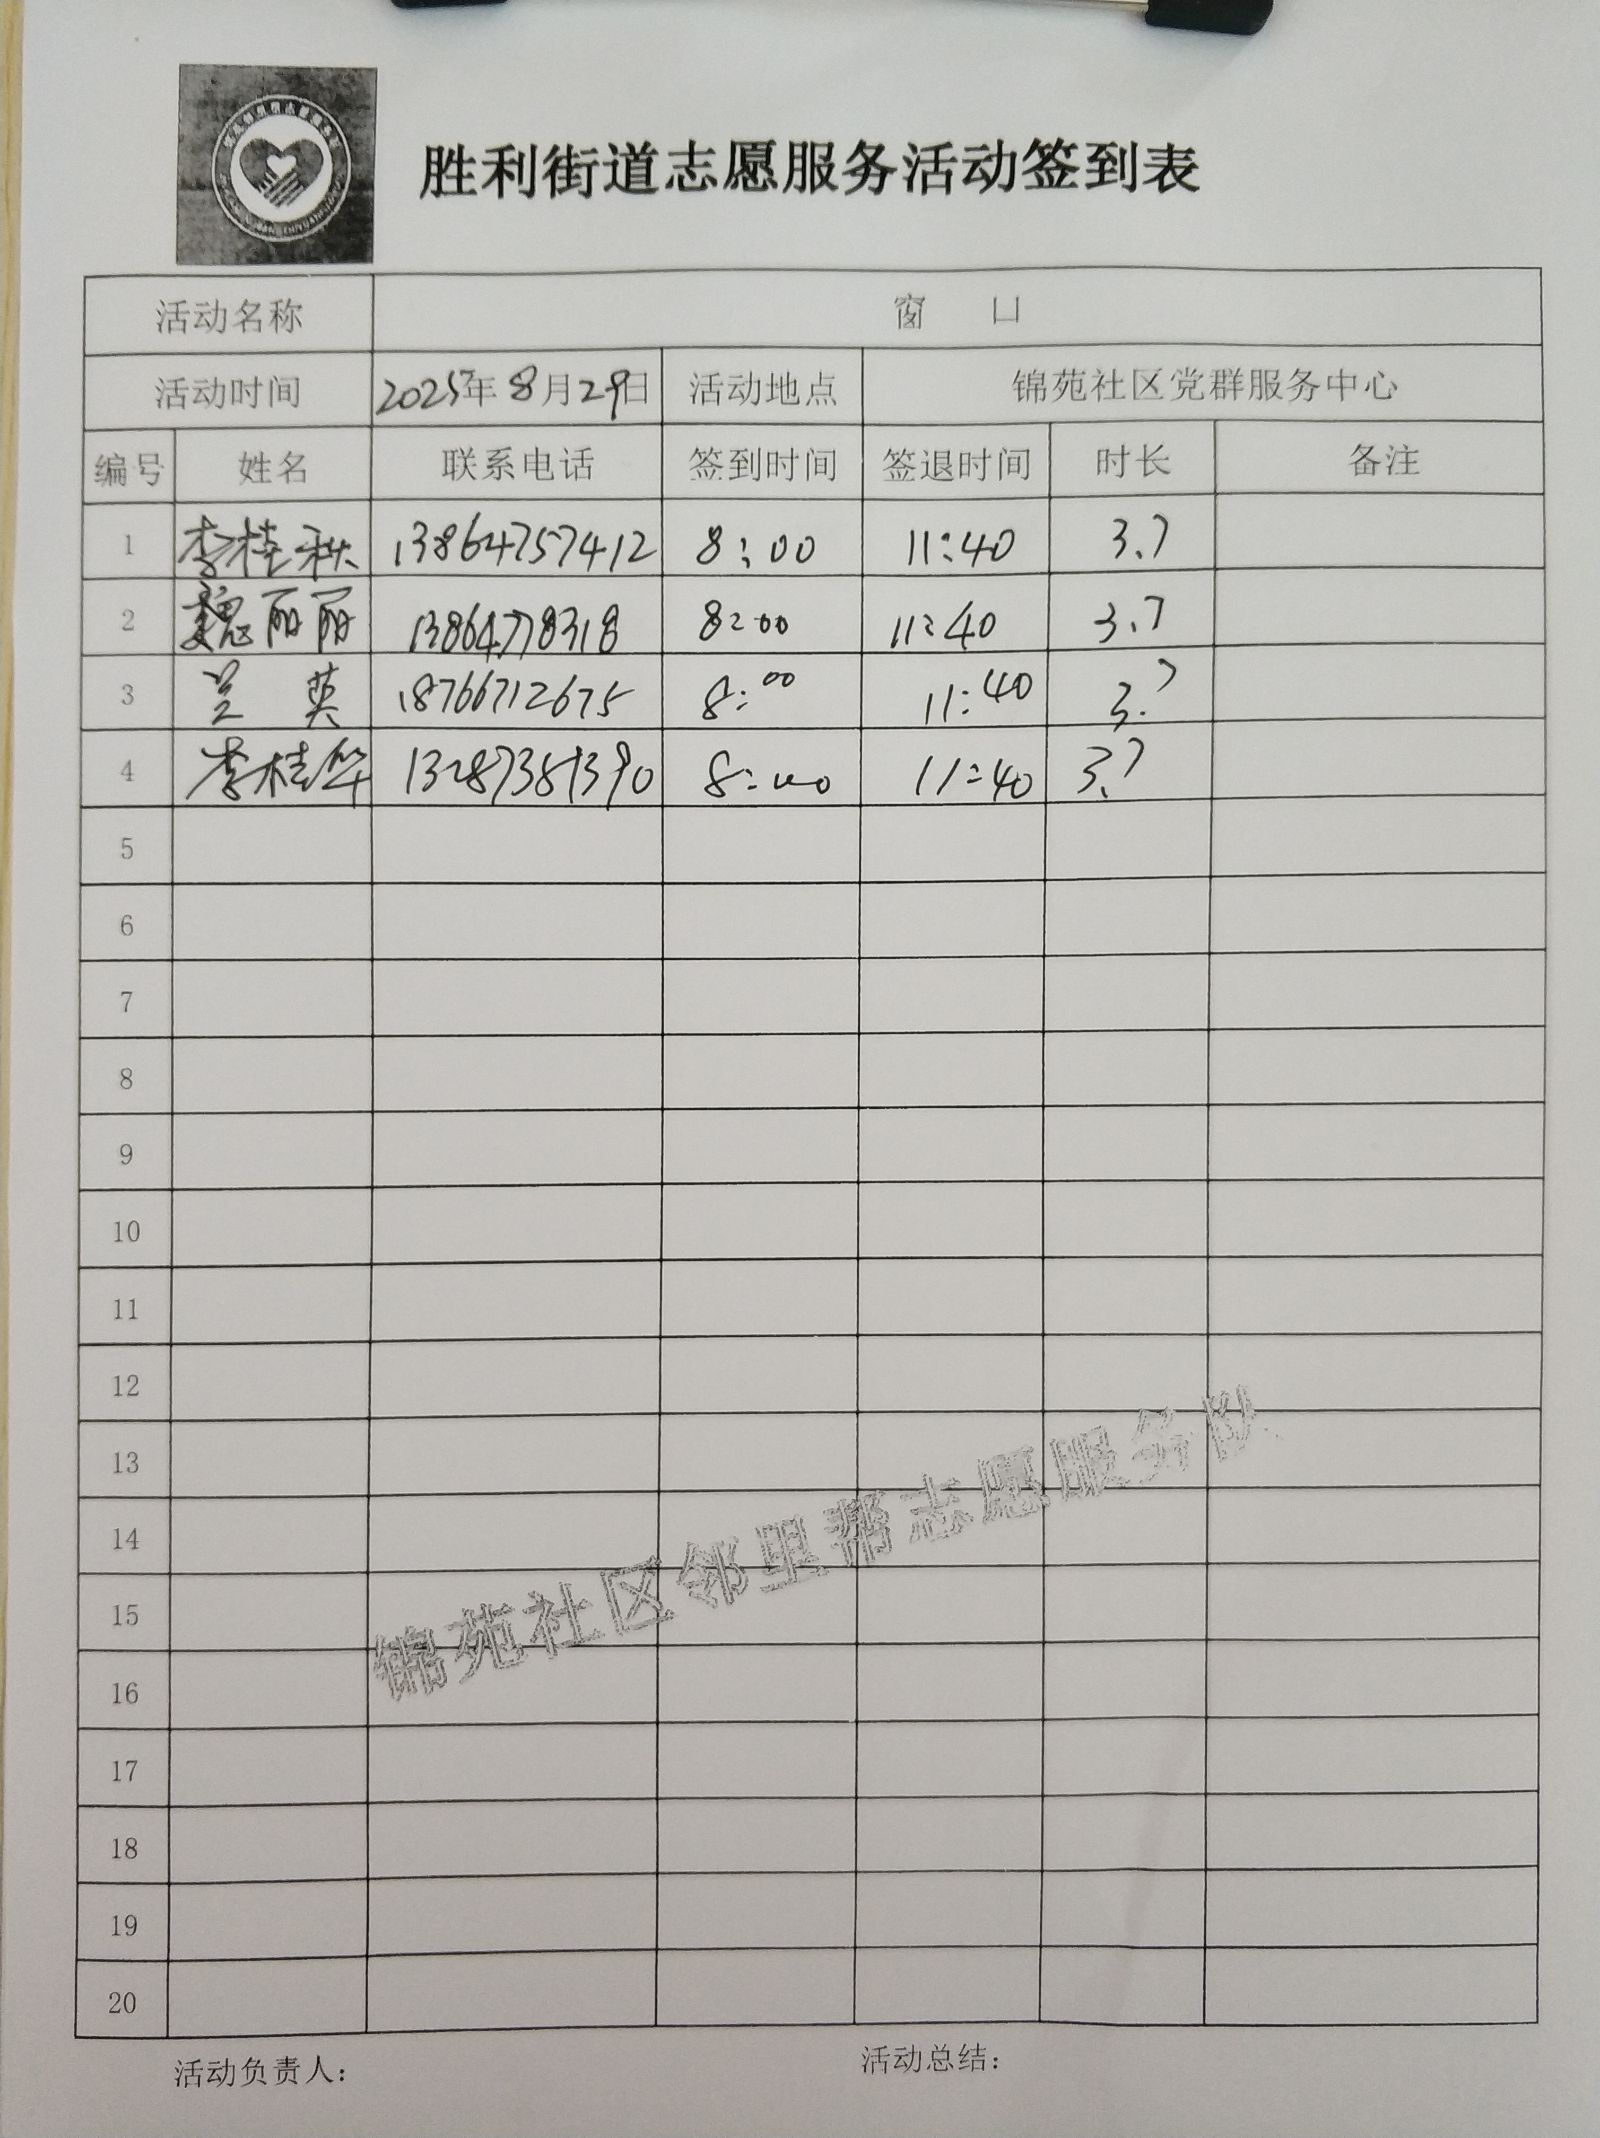 胜利街道志愿服务活动签到表
活动名称 窗 口
活动时间 2025年8月29日 活动地点 锦苑社区党群服务中心
编号 姓名 联系电话 签到时间 签退时间 时长 备注
1 李桂秋 13864757412 8:00 11:40 3.7
2 魏丽丽 13864778318 8:00 11:40 3.7
3 英 18766712675 8:00 11:40 3.7
4 李桂华 8:00 11:40 3.7
5
6
7
8
9
10
11
12
13
14
15
16
17
18
19
20
锦苑社区邻里帮志愿服务队
活动负责人: 活动总结: